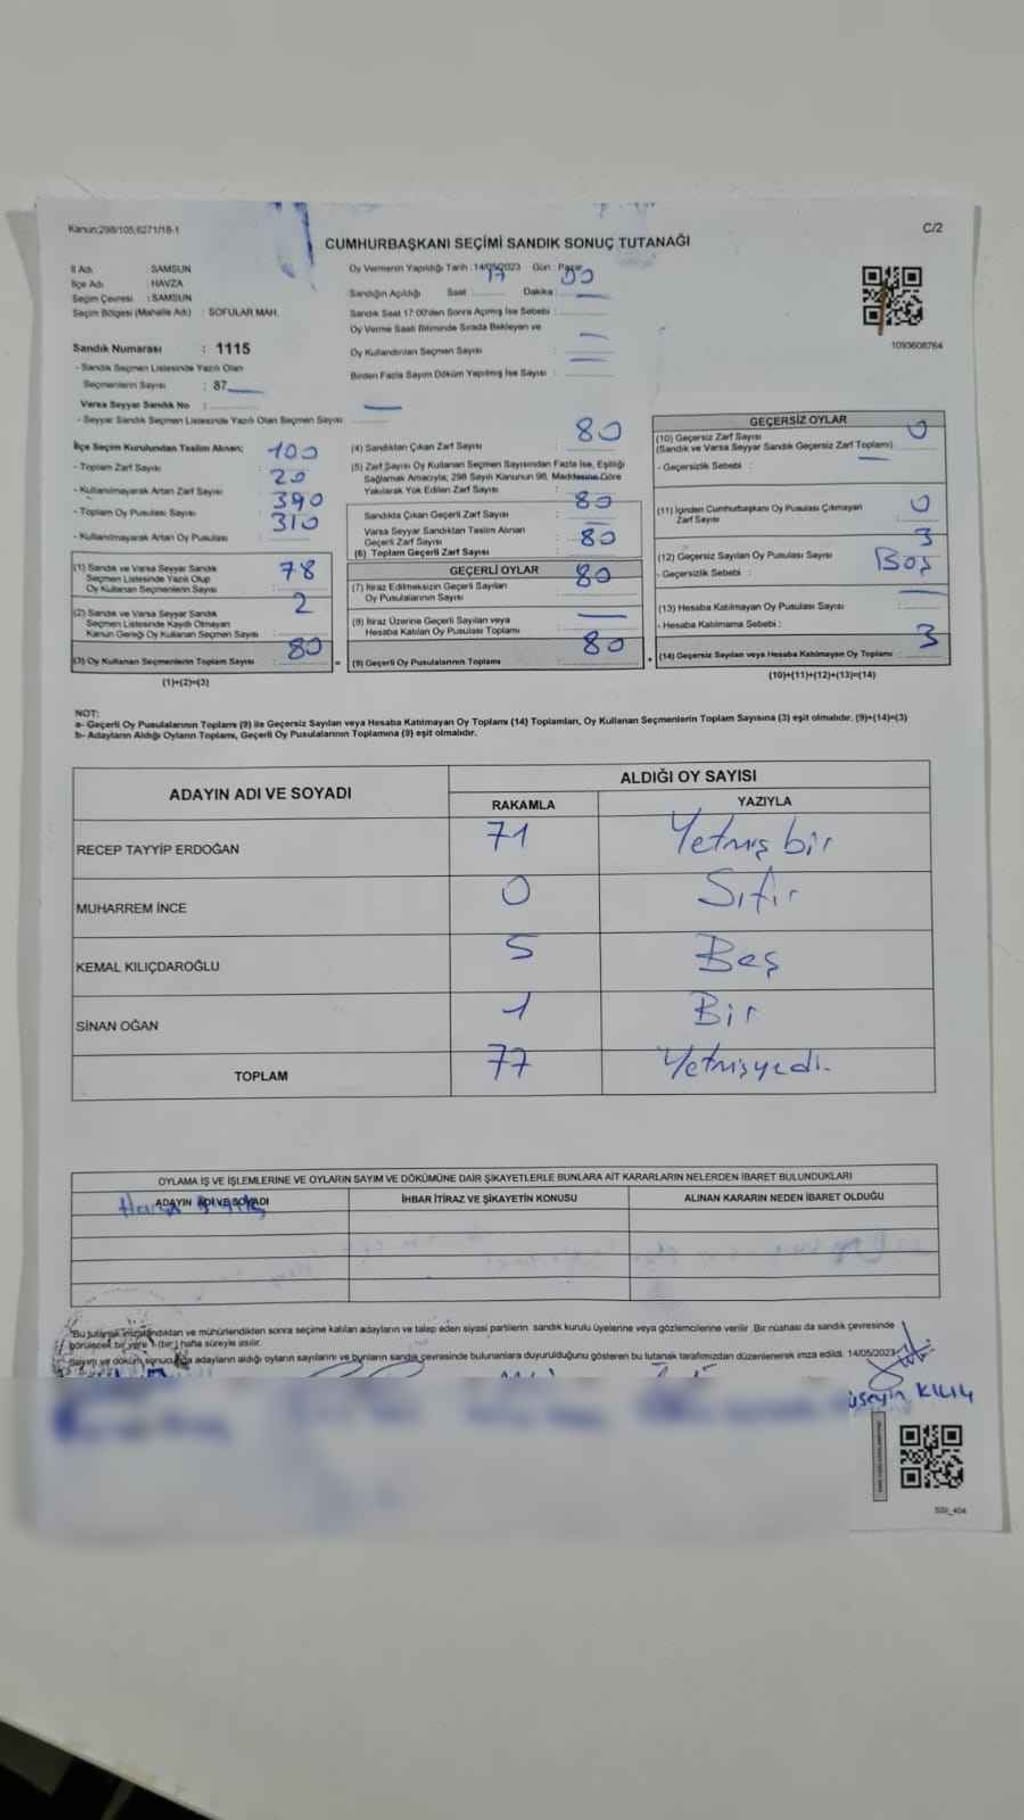 Kanun:298/105,6271/18-1
C/2
CUMHURBAŞKANI SEÇİMİ SANDIK SONUÇ TUTANAĞI
İl Adı SAMSUN
İlçe Adı HAVZA
Seçim Çevresi : SAMSUN
Seçim Bölgesi (Mahalle Adı) : SOFULAR MAH.
Sandık Numarası : 1115
- Sandık Seçmen Listesinde Yazılı Olan
Seçmenlerin Sayısı : 87
Varsa Seyyar Sandık No :
- Seyyar Sandık Seçmen Listesinde Yazılı Olan Seçmen Sayısı
Oy Vermenin Yapıldığı Tarih : 14/05/2023 Gün : Pazar
Sandığın Açıldığı Saat 17 Dakika 00
Sandık Saat 17:00'den Sonra Açılmış İse Sebebi :
Oy Verme Saati Bitiminde Sırada Bekleyen ve
Oy Kullandırılan Seçmen Sayısı
Birden Fazla Sayım Döküm Yapılmış İse Sayısı :
1093608764
İlçe Seçim Kurulundan Teslim Alınan;
- Toplam Zarf Sayısı 100
- Kullanılmayarak Artan Zarf Sayısı 20
- Toplam Oy Pusulası Sayısı 390
- Kullanılmayarak Artan Oy Pusulası 310
(1) Sandık ve Varsa Seyyar Sandık
Seçmen Listesinde Yazılı Olup
Oy Kullanan Seçmenlerin Sayısı 78
(2) Sandık ve Varsa Seyyar Sandık
Seçmen Listesinde Kaydı Olmayan
Kanun Gereği Oy Kullanan Seçmen Sayısı 2
(3) Oy Kullanan Seçmenlerin Toplam Sayısı 80
(1)+(2)=(3)
(4) Sandıktan Çıkan Zarf Sayısı 80
(5) Zarf Sayısı Oy Kullanan Seçmen Sayısından Fazla İse, Eşitliği
Sağlamak Amacıyla; 298 Sayılı Kanunun 98. Maddesine Göre
Yakılarak Yok Edilen Zarf Sayısı :
Sandıkta Çıkan Geçerli Zarf Sayısı 80
Varsa Seyyar Sandıktan Teslim Alınan
Geçerli Zarf Sayısı
(6) Toplam Geçerli Zarf Sayısı 80
GEÇERLİ OYLAR
(7) İtiraz Edilmeksizin Geçerli Sayılan
Oy Pusulalarının Sayısı 80
(8) İtiraz Üzerine Geçerli Sayılan veya
Hesaba Katılan Oy Pusulası Toplamı
(9) Geçerli Oy Pusulalarının Toplamı 80
GEÇERSİZ OYLAR
(10) Geçersiz Zarf Sayısı 0
(Sandık ve Varsa Seyyar Sandık Geçersiz Zarf Toplamı)
- Geçersizlik Sebebi :
(11) İçinden Cumhurbaşkanı Oy Pusulası Çıkmayan
Zarf Sayısı 0
(12) Geçersiz Sayılan Oy Pusulası Sayısı 3
- Geçersizlik Sebebi : Boş
(13) Hesaba Katılmayan Oy Pusulası Sayısı
- Hesaba Katılmama Sebebi :
(14) Geçersiz Sayılan veya Hesaba Katılmayan Oy Toplamı 3
(10)+(11)+(12)+(13)=(14)
NOT:
a- Geçerli Oy Pusulalarının Toplamı (9) ile Geçersiz Sayılan veya Hesaba Katılmayan Oy Toplamı (14) Toplamları, Oy Kullanan Seçmenlerin Toplam Sayısına (3) eşit olmalıdır. (9)+(14)=(3)
b- Adayların Aldığı Oyların Toplamı, Geçerli Oy Pusulalarının Toplamına (9) eşit olmalıdır.
ADAYIN ADI VE SOYADI
ALDIĞI OY SAYISI
RAKAMLA YAZIYLA
RECEP TAYYİP ERDOĞAN 71 Yetmiş bir
MUHARREM İNCE 0 Sıfır
KEMAL KILIÇDAROĞLU 5 Beş
SİNAN OĞAN 1 Bir
TOPLAM 77 Yetmişyedi
OYLAMA İŞ VE İŞLEMLERİNE VE OYLARIN SAYIM VE DÖKÜMÜNE DAİR ŞİKAYETLERLE BUNLARA AİT KARARLARIN NELERDEN İBARET BULUNDUKLARI
ADAYIN ADI VE SOYADI İHBAR İTİRAZ VE ŞİKAYETİN KONUSU ALINAN KARARIN NEDEN İBARET OLDUĞU
Bu tutanak imzalandıktan ve mühürlendikten sonra seçime katılan adayların ve talep eden siyasi partilerin sandık kurulu üyelerine veya gözlemcilerine verilir. Bir nüshası da sandık çevresinde
görülecek bir yere 1 (bir) hafta süreyle asılır.
Sayım ve döküm adayların aldığı oyların sayılarını ve bunların sandık çevresinde bulunanlara duyurulduğunu gösteren bu tutanak tarafımızdan düzenlenerek imza edildi. 14/05/2023
üseyin KILIÇ
SSI_404